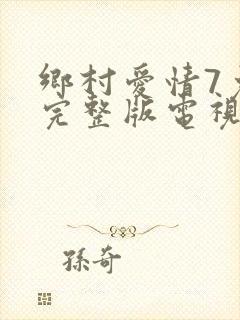 鄉村愛情7
完整版電視
孫奇